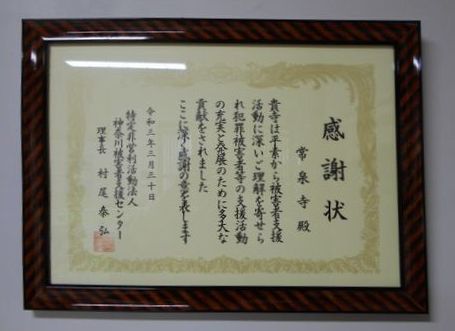 感謝状
常泉寺殿
貴寺は平素から被害者支援
活動に深いご理解を寄せら
れ犯罪被害者等の支援活動
の充実と発展のために多大な
貢献をされました
ここに深く感謝の意を表します
令和三年三月三十日
特定非営利活動法人
神奈川被害者支援センター
理事長 村尾泰弘